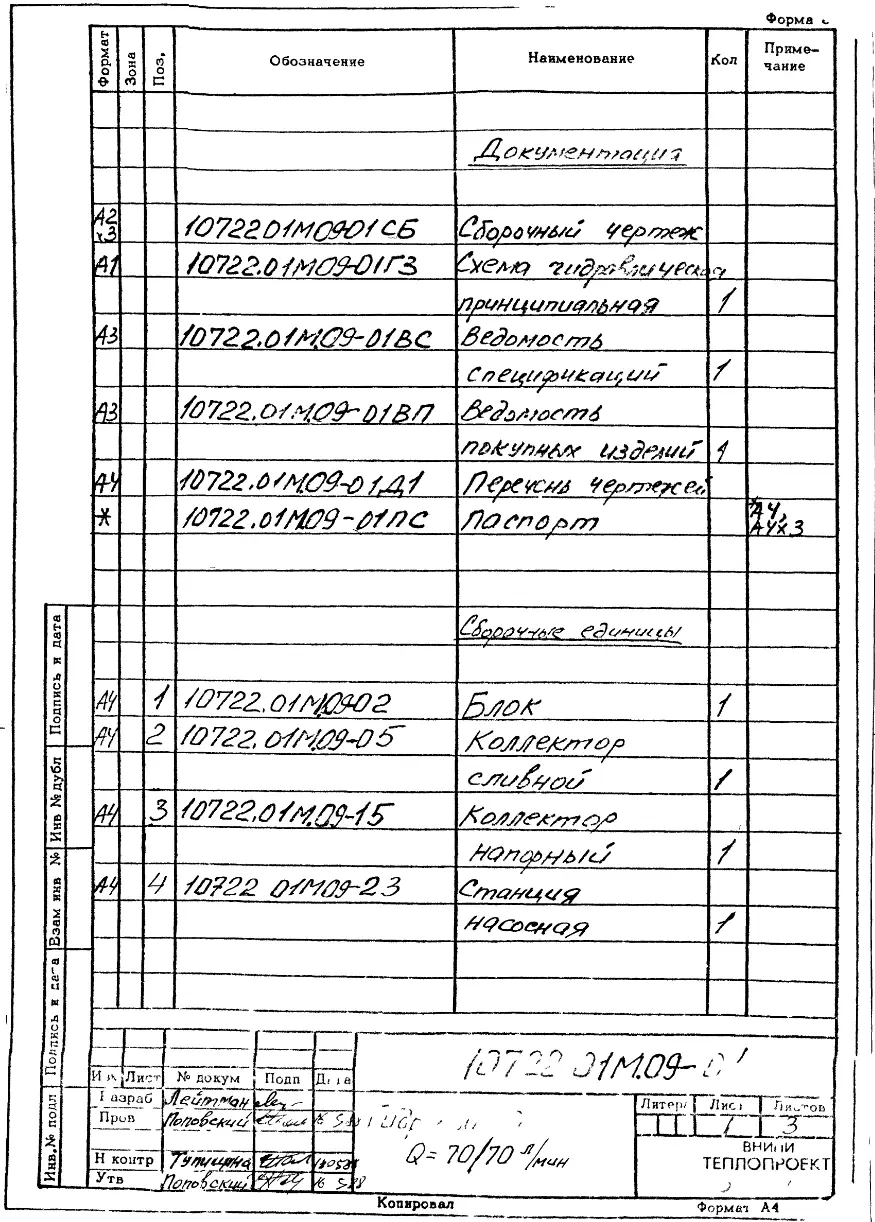 Форма
Формат Зона Поз. Обозначение Наименование Кол Приме-
чание
Документация
А2
х3 10722.01М09-01СБ Сборочный чертеж
А1 10722.01М09-01Г3 Схема гидравлическая
принципиальная 1
А3 10722.01М.09-01ВС Ведомость
спецификаций 1
А3 10722.01М.09-01ВП Ведомость
покупных изделий 1
А4 10722.01М.09-01Д1 Перечень чертежей
* 10722.01М.09-01ПС Паспорт *А4,
А4х3
Сборочные единицы
А4 1 10722.01М.09-02 Блок 1
А4 2 10722.01М.09-05 Коллектор
сливной 1
А4 3 10722.01М.09-15 Коллектор
напорный 1
А4 4 10722 01М09-23 Станция
насосная 1
Подпись и дата
Инв № дубл
Взам инв №
Подпись и дата
Инв.№ подл
10722 01М.09-01
Лист № докум Подп Дата
Разраб Лейтман
Пров Поповский
Н контр Тупицина
Утв Поповский
Q=70/70 л/мин
Литера Лист Листов
1 3
ВНИПИ
ТЕПЛОПРОЕКТ
Копировал Формат А4